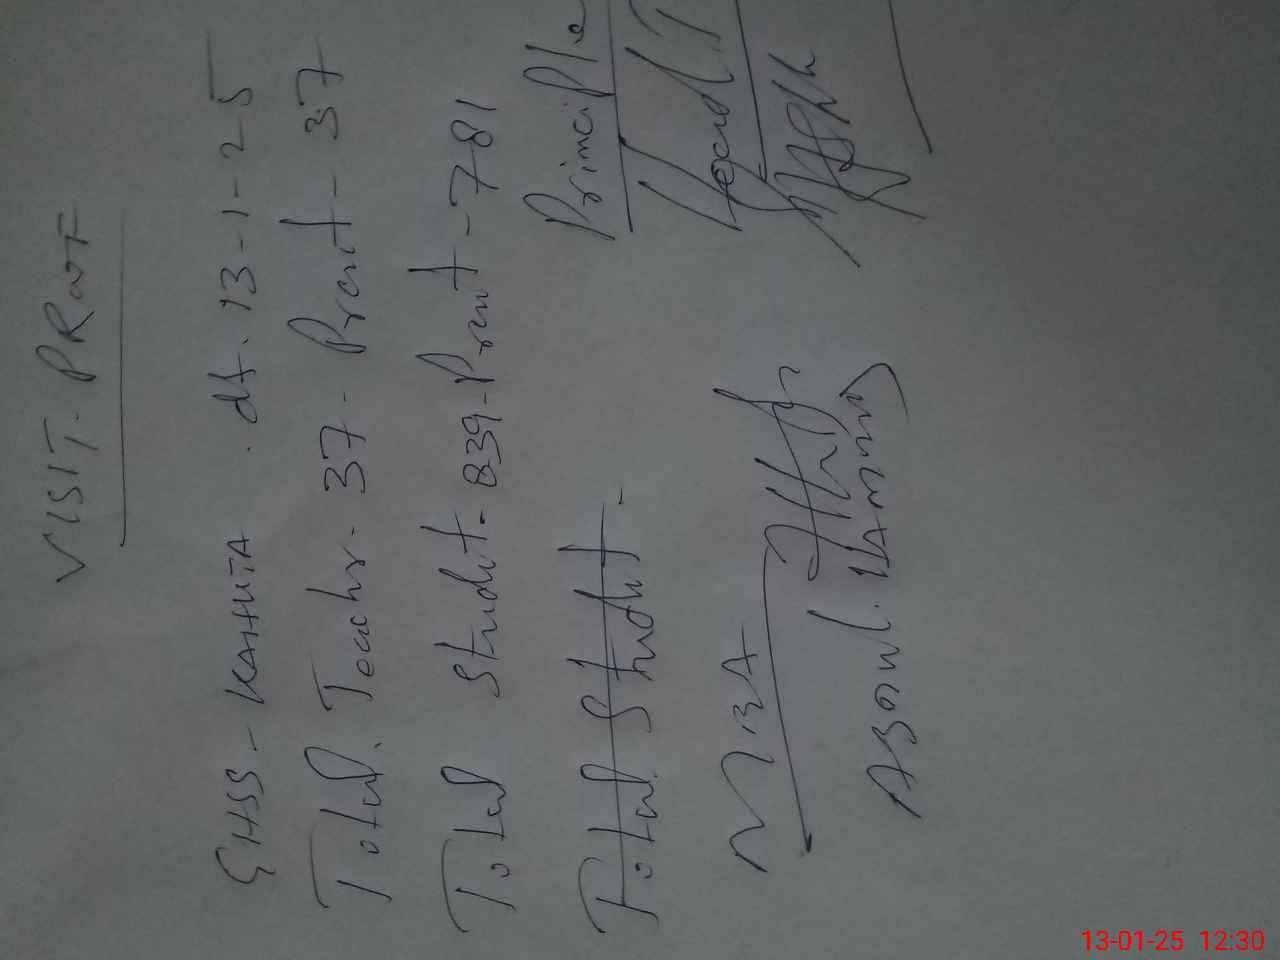 VISIT. PRooF
GHSS - KAHUTA . dt. 13-1-25
Total. Teachr. 37 - Prent - 37
Total Studut - 839 - Prent - 781
Total Studut -
Principle
Head.T
13-01-25 12:30